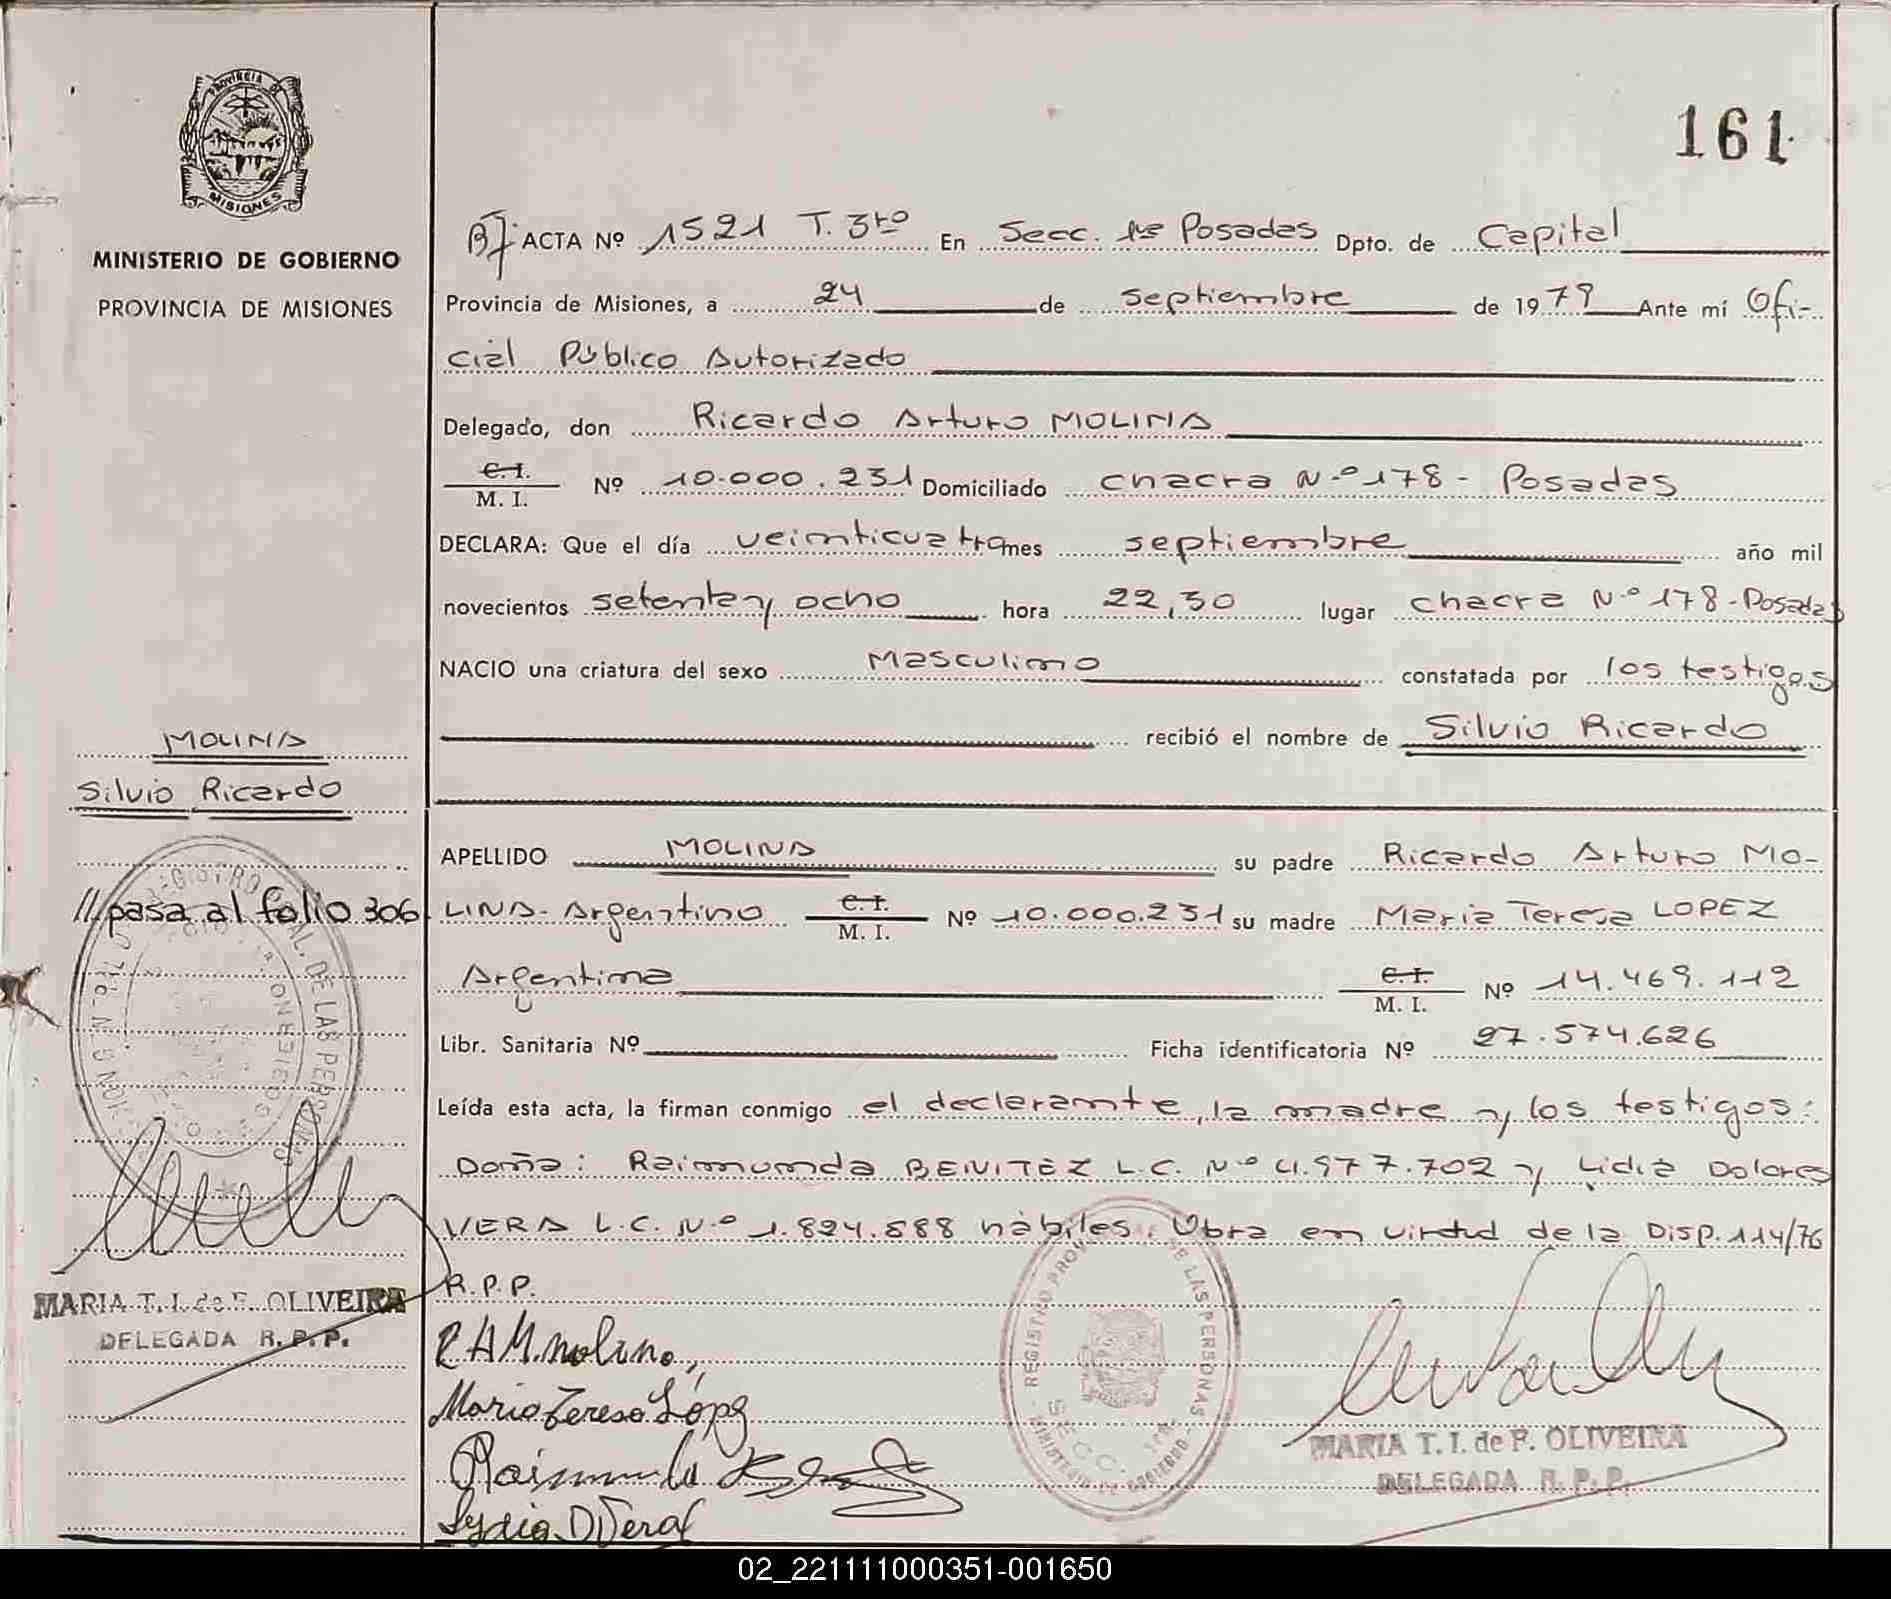 161
PROVINCIA DE
MISIONES
MINISTERIO DE GOBIERNO
PROVINCIA DE MISIONES
ACTA Nº 1521 T. 3ro En Secc. 1ra Posadas Dpto. de Capital
Provincia de Misiones, a 24 de septiembre de 1979 Ante mí Ofi-
cial Público Autorizado
Delegado, don Ricardo Arturo MOLINA
C.I.
M. I. Nº 10.000.231 Domiciliado chacra N.º 178 - Posadas
DECLARA: Que el día veinticuatro mes septiembre año mil
novecientos setenta y ocho hora 22,30 lugar chacra N.º 178-Posadas
NACIO una criatura del sexo Masculino constatada por los testigos
recibió el nombre de Silvio Ricardo
MOLINA
Silvio Ricardo
//pasa al folio 306
APELLIDO MOLINA su padre Ricardo Arturo MO-
LINA- Argentino C.I. M. I. Nº 10.000.231 su madre Maria Teresa LOPEZ
Argentina C.I. M. I. Nº 14.469.112
Libr. Sanitaria Nº Ficha identificatoria Nº 27.574.626
Leída esta acta, la firman conmigo el declarante, la madre y los testigos:
Doña: Raimunda BENITEZ L.C. Nº 4.977.702 y Lidia Dolores
VERA L.C. N.º 1.824.888 hábiles. Obra en virtud de la Disp. 114/76
R.P.P.
R A Molina
Maria Teresa López
Raimunda
Lydia D Vera
MARIA T. I. de F. OLIVEIRA
DELEGADA R. P. P.
REGISTRO PROV. DE LAS PERSONAS
SECC. 1RA.
MINISTERIO DE GOBIERNO
MARIA T. I. de F. OLIVEIRA
DELEGADA R. P. P.
02_221111000351-001650